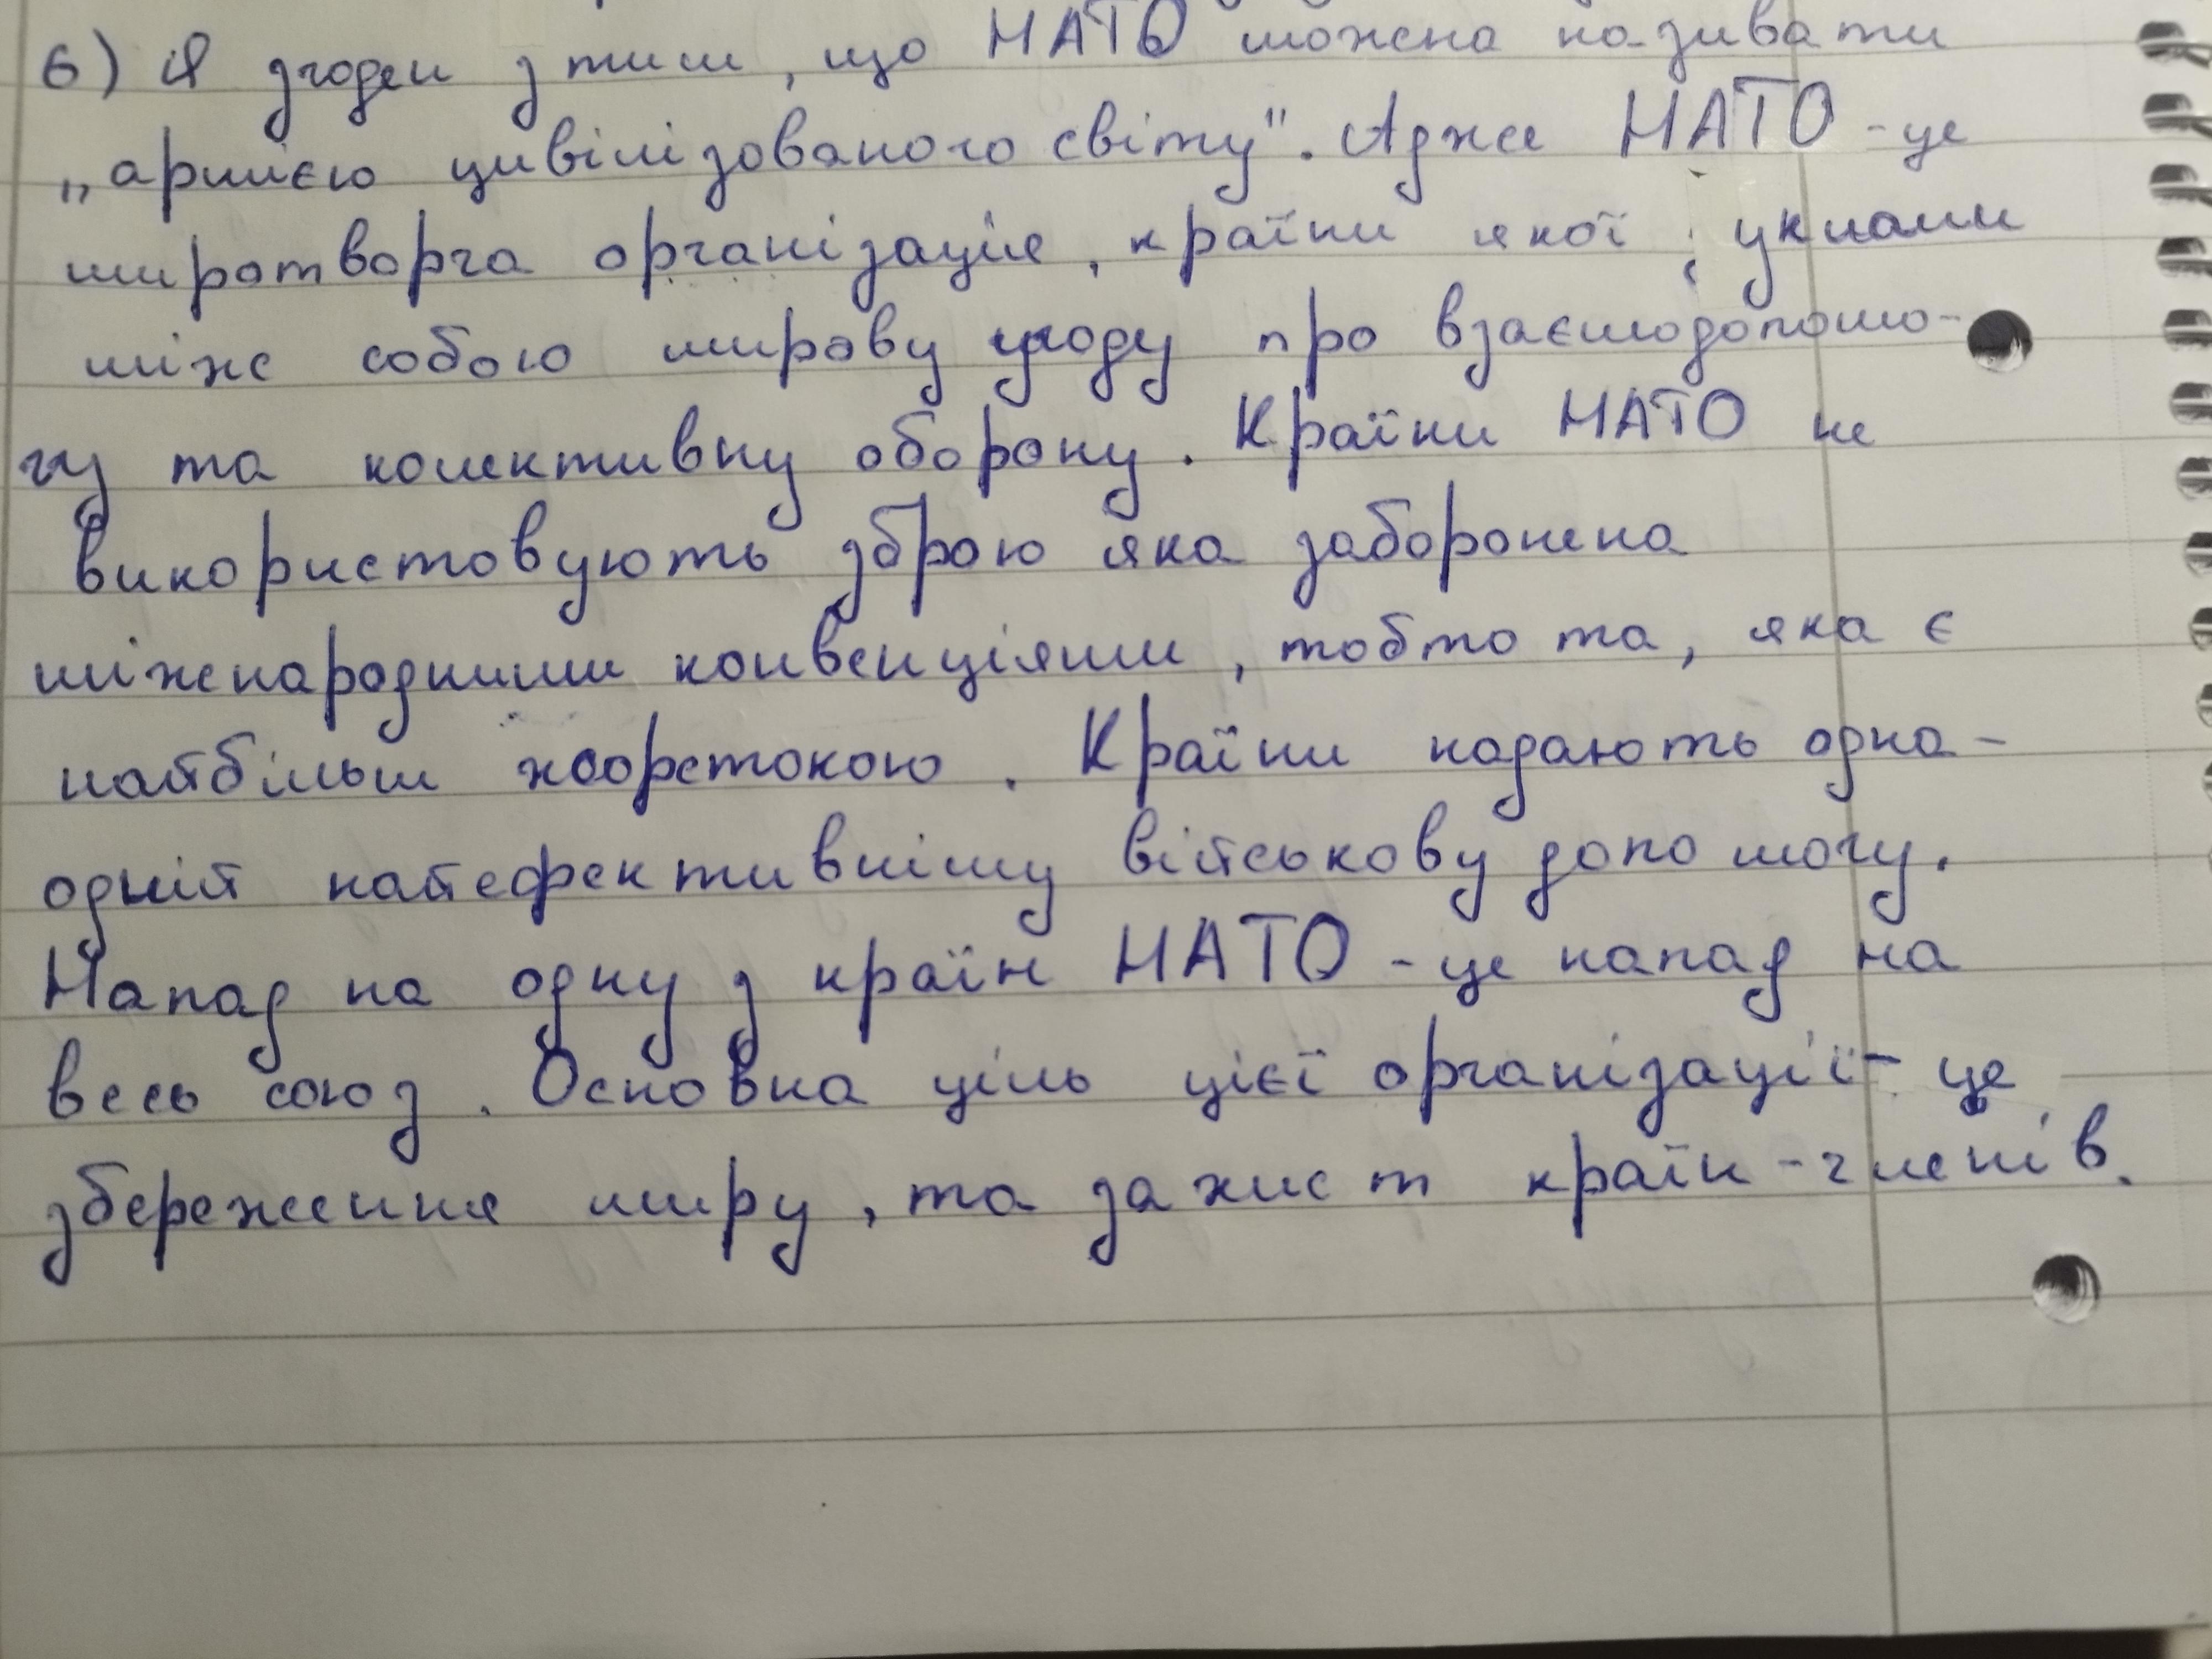 6) Я згоден з тим, що НАТО можна називати
„армією цивілізованого світу". Адже НАТО - це
миротворча організація, країни якої, уклали
між собою мирову угоду про взаємодопомо-
гу та колективну оборону. Країни НАТО не
використовують зброю яка заборонена
міжнародними конвенціями, тобто та, яка є
найбільш жорстокою. Країни надають одна-
одній найефективнішу військову допомогу.
Напад на одну з країн НАТО - це напад на
весь союз. Основна ціль цієї організації - це
збереження миру, та захист країн - членів.